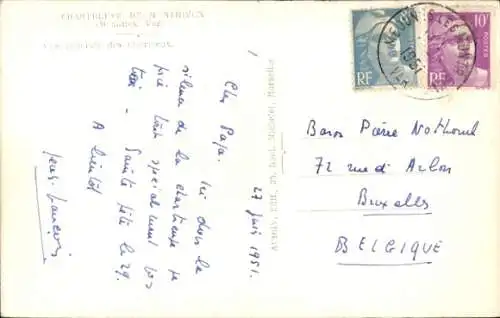 CHARTREUSE DE M
Vue générale des
27 juin 1951.
Cher Papa. Ici dans le
silence de la chartreuse je
prie tout spécialement pour
toi - Sainte fête le 29.
A bientôt
Jean-François
Marseille
RF
RF
10F
POSTES
1951
VAR
Baron Pierre Nothomb
72 rue d'Arlon
Bruxelles
BELGIQUE